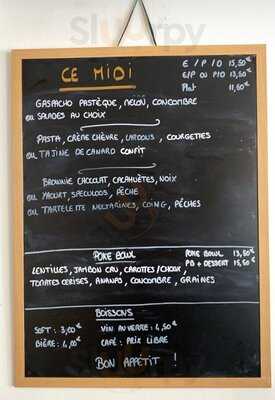 CE MIDI
E / P / D 15,50€
E/P OU P/D 13,50€
Plat 11,60€
GASPACHO PASTÈQUE, MELON, CONCOMBRE
ou SALADES AU CHOIX
PASTA, CRÈME CHÈVRE, LARDONS, COURGETTES
ou TAJINE DE CANARD CONFIT
BROWNIE CHOCOLAT, CACAHUÈTES, NOIX
ou YAOURT, SPECULOOS, PÊCHE
ou TARTELETTE NECTARINES, COING, PÊCHES
POKE BOWL
POKE BOWL 13,50€
PB + DESSERT 15,50€
LENTILLES, JAMBON CRU, CAROTTES / CHOUX,
TOMATES CERISES, ANANAS, CONCOMBRE, GRAINES
BOISSONS
SOFT : 3,00€
VIN AU VERRE : 4,50€
BIÈRE : 4,00€
CAFÉ : PRIX LIBRE
BON APPÉTIT !